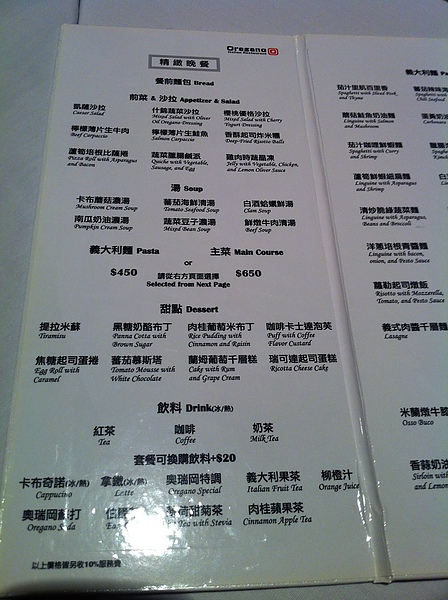 Oregano
精緻晚餐
餐前麵包 Bread
前菜 & 沙拉 Appetizer & Salad
凱薩沙拉 什錦蔬菜沙拉 櫻桃優格沙拉
Caesar Salad Mixed Salad with Oliver Oil Oregano Dressing Mixed Salad with Cherry Yogurt Dressing
檸檬薄片生牛肉 檸檬薄片生鮭魚 香酥起司炸米糰
Beef Carpaccio Salmon Carpaccio Deep-Fried Risotto Balls
蘆筍培根比薩捲 蔬菜臘腸鹹派 雞肉時蔬晶凍
Pizza Roll with Asparagus and Bacon Quiche with Vegetable, Sausage, and Egg Jelly with Vegetable, Chicken, and Lemon Oliver Sauce
湯 Soup
卡布蘑菇濃湯 蕃茄海鮮清湯 白酒蛤蠣鮮湯
Mushroom Cream Soup Tomato Seafood Soup Clam Soup
南瓜奶油濃湯 蔬菜豆子濃湯 鮮燉牛肉清湯
Pumpkin Cream Soup Mixed Bean Soup Beef Soup
義大利麵 Pasta 主菜 Main Course
or
$450 $650
請從右方頁面選擇
Selected from Next Page
甜點 Dessert
提拉米蘇 黑糖奶酪布丁 肉桂葡萄米布丁 咖啡卡士達泡芙
Tiramisu Panna Cotta with Brown Sugar Rice Pudding with Cinnamon and Raisin Puff with Coffee Flavor Custard
焦糖起司蛋捲 蕃茄慕斯塔 蘭姆葡萄千層糕 瑞可達起司蛋糕
Egg Roll with Caramel Tomato Mousse with White Chocolate Cake with Rum and Grape Cream Ricotta Cheese Cake
飲料 Drink(冰/熱)
紅茶 咖啡 奶茶
Tea Coffee Milk Tea
套餐可換購飲料+$20
卡布奇諾(冰/熱) 拿鐵(冰/熱) 奧瑞岡特調 義大利果茶 柳橙汁
Cappucino Latte Oregano Special Italian Fruit Tea Orange Juice
奧瑞岡蘇打 甜菊茶 肉桂蘋果茶
Oregano Soda Tea with Stevia Cinnamon Apple Tea
以上價格皆另收10%服務費
義大利麵
茄汁里肌百里香
Spaghetti with Sliced Pork, and Thyme
蘑菇鮭魚奶油麵
Linguine with Salmon and Mushroom
Spaghetti with Curry and Shrimp
Linguine with Asparagus and Shrimp
清炒脆綠蔬菜麵
Linguine with Asparagus, Beans and Broccoli
洋蔥培根青醬麵
Linguine with bacon, onion, and Pesto Sauce
蘿勒起司燉飯
Risotto with Mozzarella, Tomato, and Pesto Sauce
義式肉醬千層麵
Lasagne
米蘭燉牛膝
Osso Buco
Sirloin with and Lemon